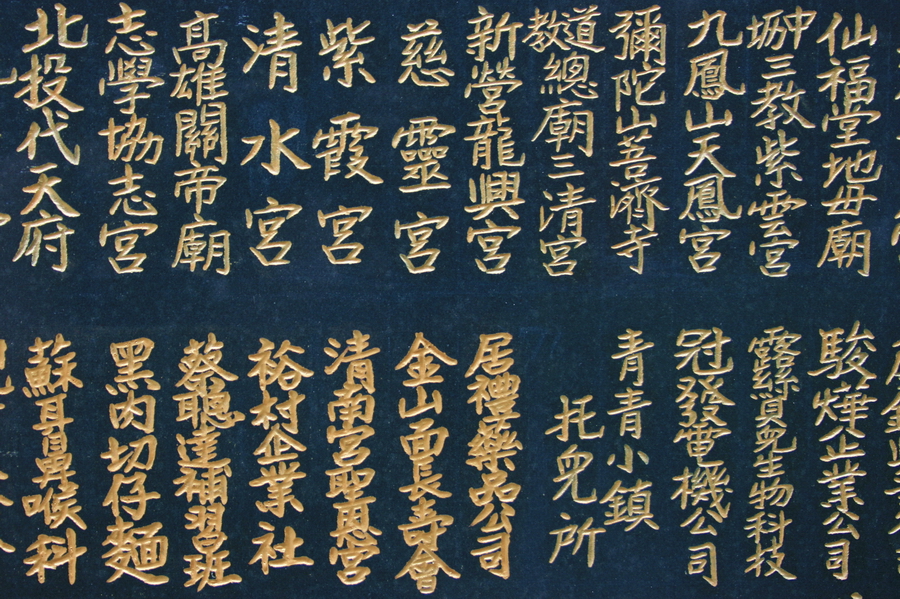 仙福堂地母廟
中壢三教紫雲宮
九鳳山天鳳宮
彌陀山菩濟寺
道教總廟三清宮
新營龍興宮
慈靈宮
紫霞宮
清水宮
高雄關帝廟
志學協志宮
北投代天府
駿燁企業公司
露絲貝兒生物科技
冠發電機公司
青青小鎮
托兒所
居禮藥品公司
金山面長壽會
清南宮聖惠宮
裕村企業社
蔡聰達補習班
黑肉切仔麵
蘇耳鼻喉科